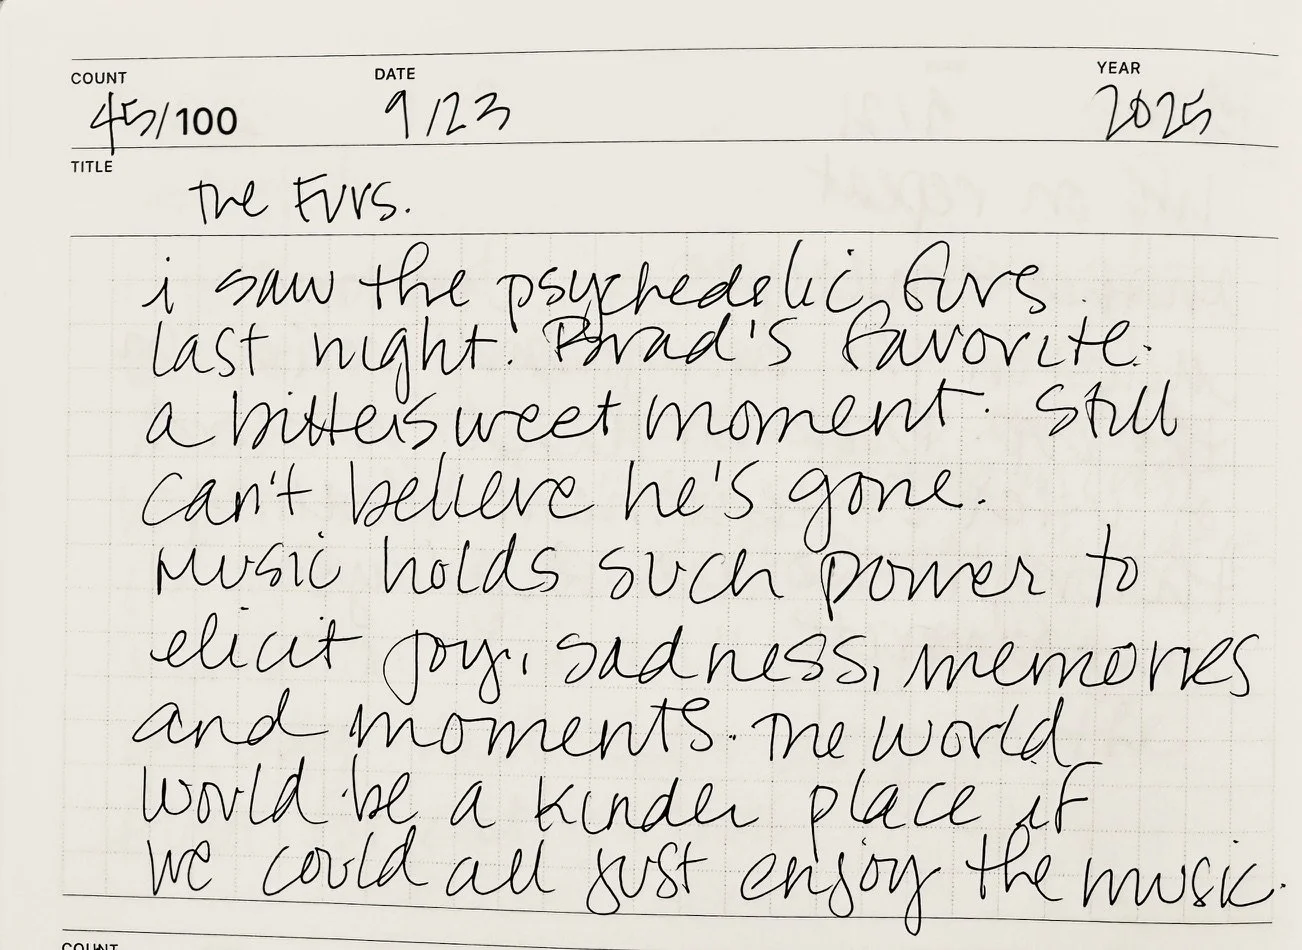 COUNT DATE YEAR
45/100 9/23 2025
TITLE
The Furs.
i saw the psychedelic furs
last night. Brad's favorite.
a bittersweet moment. Still
can't believe he's gone.
Music holds such power to
elicit joy, sadness, memories
and moments. The world
would be a kinder place if
we could all just enjoy the music.
COUNT